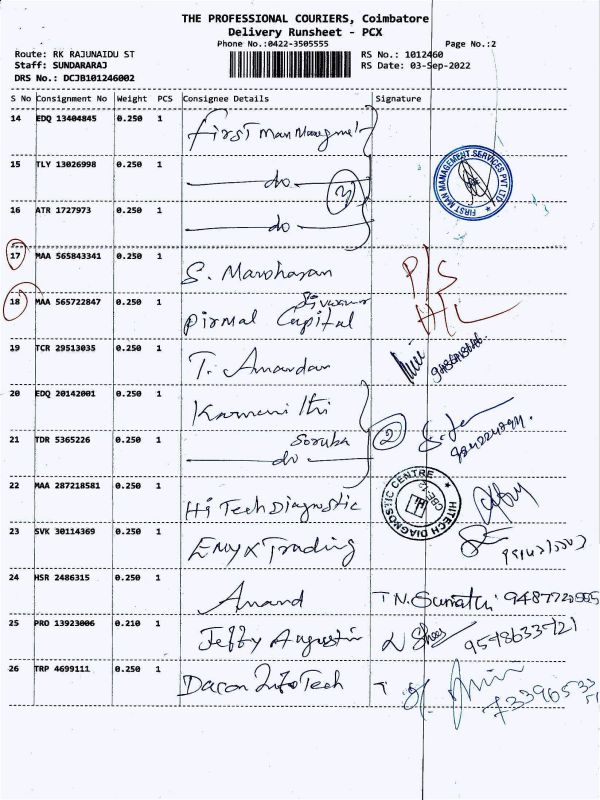 THE PROFESSIONAL COURIERS, Coimbatore
Delivery Runsheet - PCX
Phone No.:0422-3505555
Page No.:2
Route: RK RAJUNAIDU ST
RS No.: 1012460
Staff: SUNDARARAJ
RS Date: 03-Sep-2022
DRS No.: DCJB101246002
S No Consignment No Weight PCS Consignee Details Signature
14 EDQ 13404845 0.250 1 First Man Managment
15 TLY 13026998 0.250 1 do 3
FIRST MAN MANAGEMENT SERVICES PVT LTD
16 ATR 1727973 0.250 1 do
17 MAA 565843341 0.250 1 S. Manoharan P/S
18 MAA 565722847 0.250 1 Pirmal Capital H/L
19 TCR 29513035 0.250 1 T. Anandan
20 EDQ 20142001 0.250 1
21 TDR 5365226 0.250 1 do 2
22 MAA 287218581 0.250 1 Hi Tech Diagnostic
HITECH DIAGNOSTIC CENTRE
23 SVK 30114369 0.250 1 Enyx Trading
24 HSR 2486315 0.250 1 Anand T N. Sumathi
25 PRO 13923006 0.210 1 Jeffy Augustin 9578633721
26 TRP 4699111 0.250 1 Dacon Info Tech